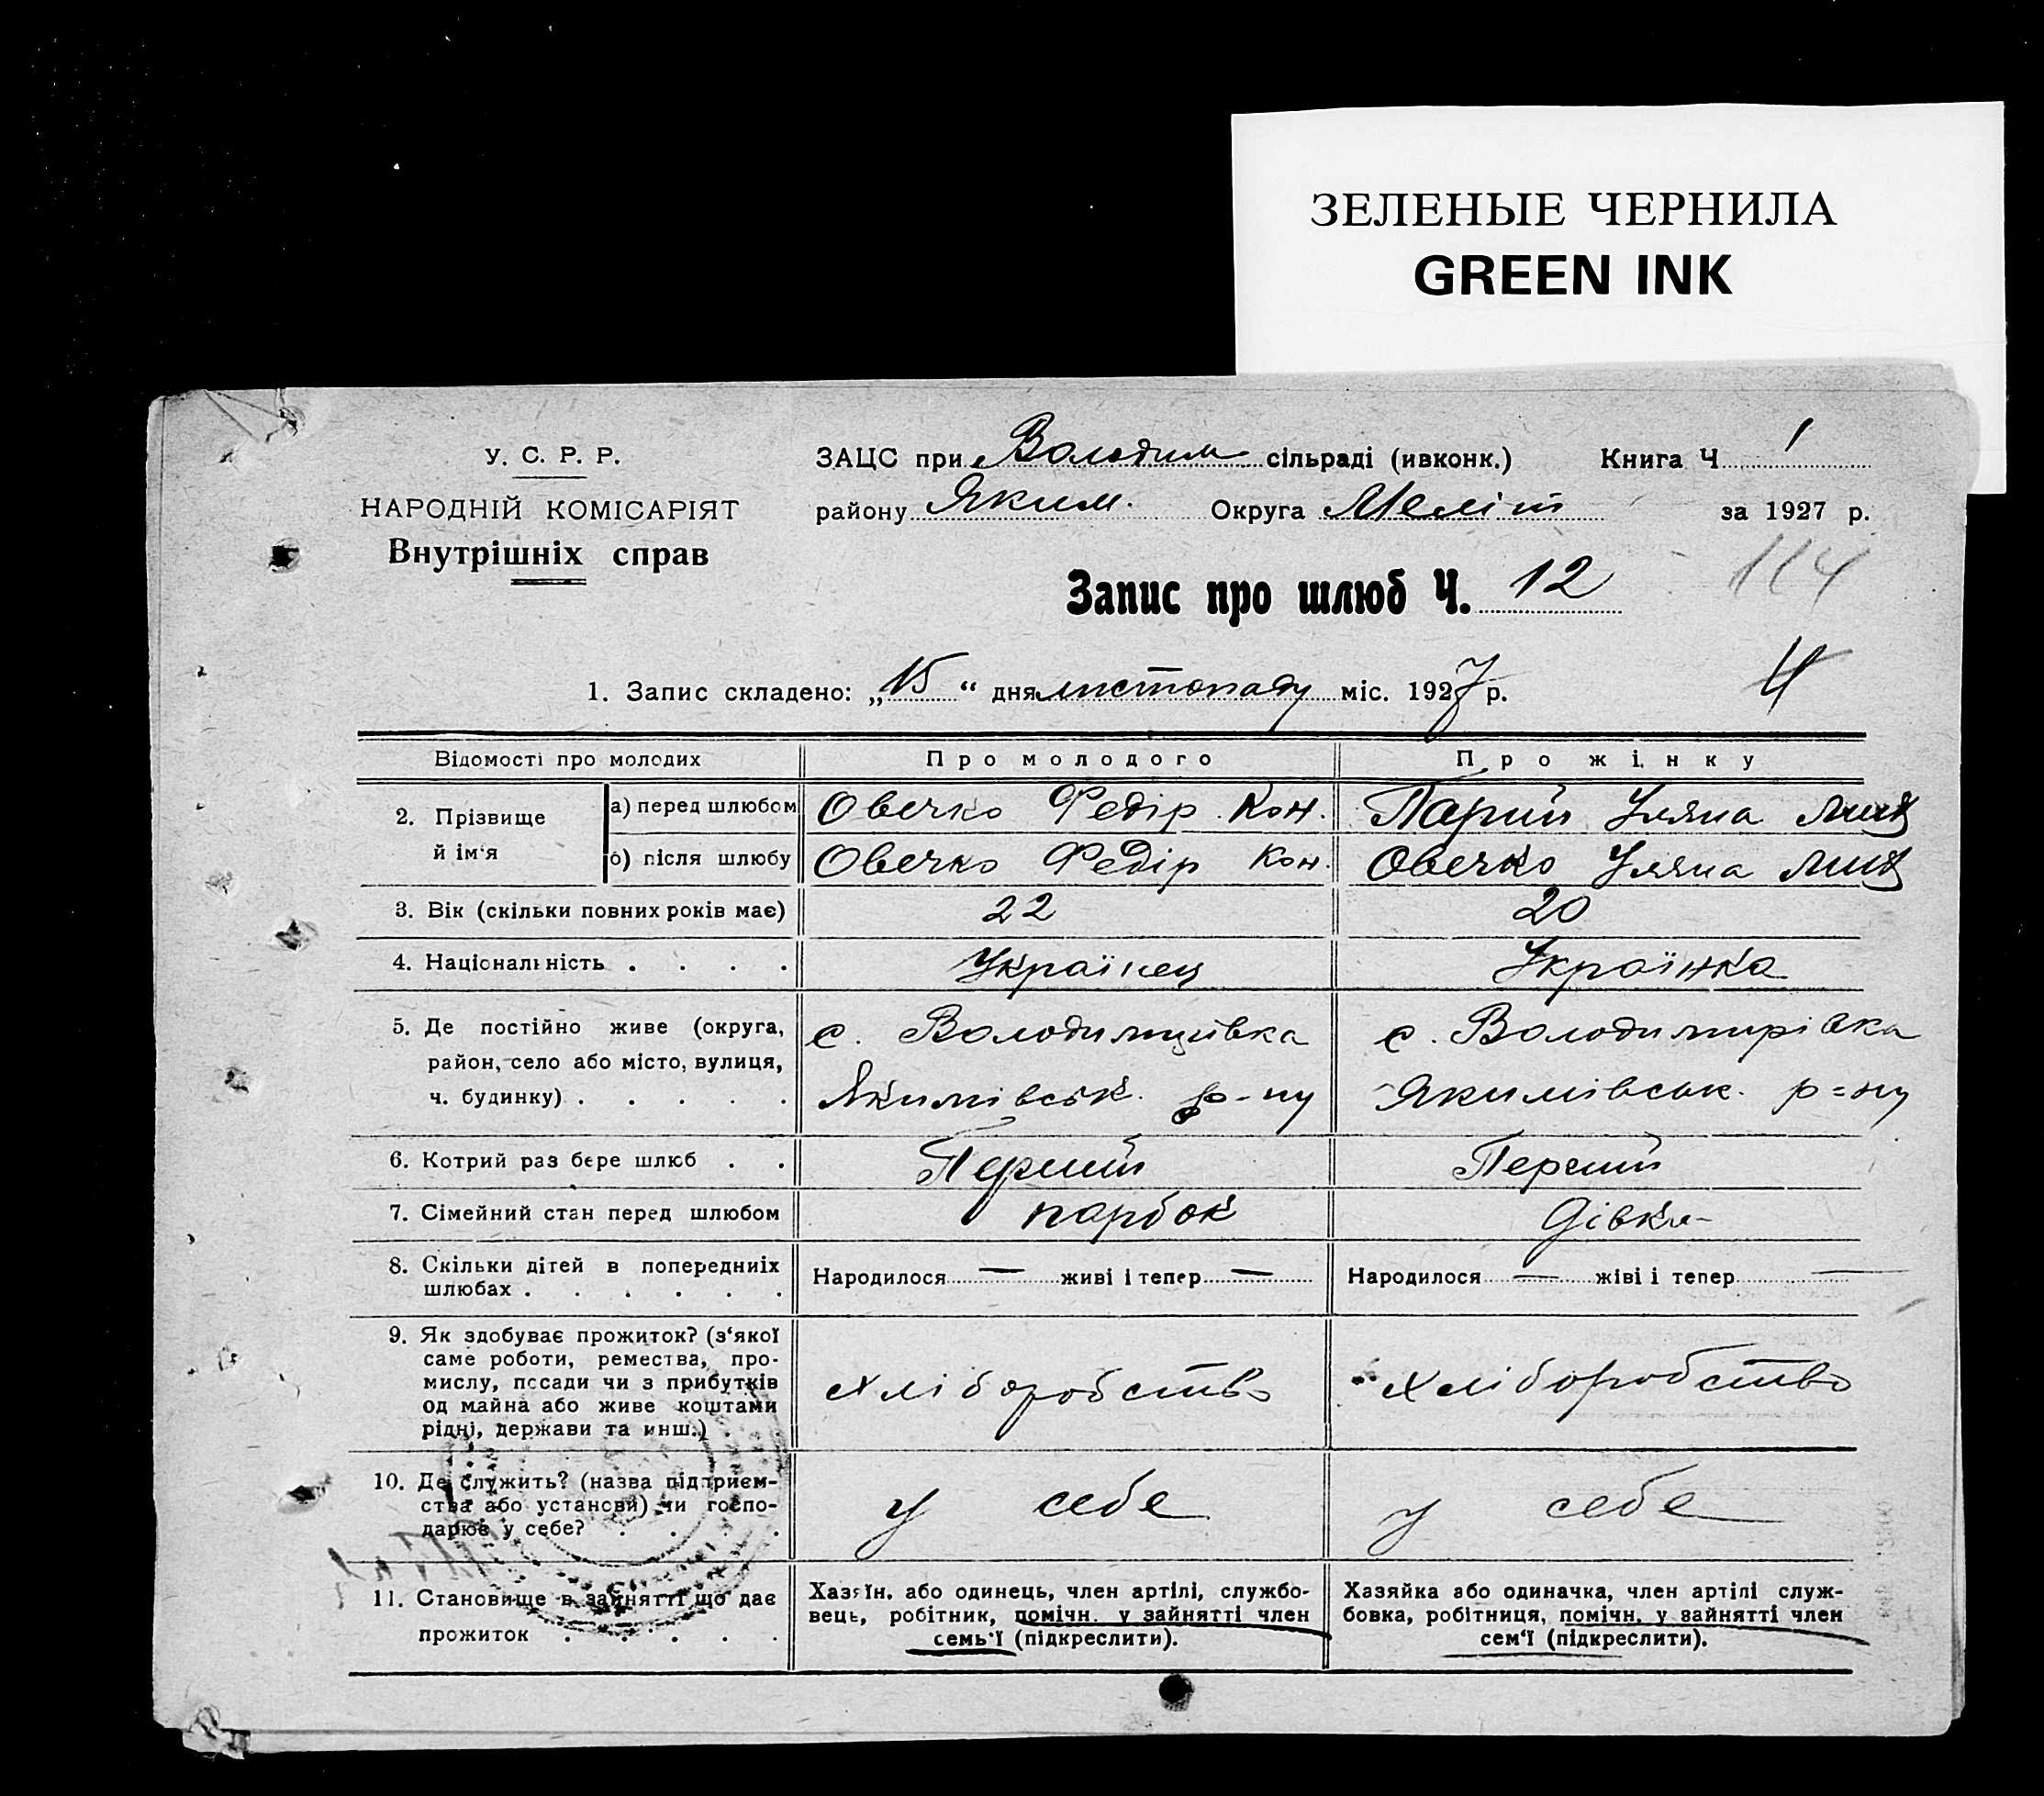 ЗЕЛЕНЫЕ ЧЕРНИЛА
GREEN INK
У. С. Р. Р.
НАРОДНІЙ КОМІСАРІЯТ
Внутрішніх справ
ЗАЦС при Володим сільраді (ивконк.) Книга Ч 1
району Яким. Округа Меліт за 1927 р.
114
Запис про шлюб Ч. 12
1. Запис складено: „15“ дня листопаду міс. 1927 р.
Відомості про молодих
Про молодого
Про жінку
2. Прізвище й ім‘я
а) перед шлюбом
Овечко Федір Кон.
Парий Уляна
б) після шлюбу
Овечко Федір Кон.
Овечко Уляна
3. Вік (скільки повних років має)
22
20
4. Національність . . . .
Українец
Українка
5. Де постійно живе (округа,
район, село або місто, вулиця,
ч. будинку) . . . . .
с. Володимирівка
Якимівськ. р-ну
с. Володимирівка
Якимівськ. р=ну
6. Котрий раз бере шлюб . .
Перший
Перший
7. Сімейний стан перед шлюбом
парбок
Дівка
8. Скільки дітей в попередниіх
шлюбах . . . . . .
Народилося — живі і тепер —
Народилося — жіві і тепер —
9. Як здобуває прожиток? (з‘якої
саме роботи, ремества, про-
мислу, посади чи з прибутків
од майна або живе коштами
рідні, держави та инш.) .
хліборобство
хліборобство
10. Де служить? (назва підприєм-
ства або установи) чи госпо-
дарює у себе? . . . .
у себе
у себе
11. Становище в зайнятті що дає
прожиток . . . . .
Хазяїн, або одинець, член артілі, службо-
вець, робітник, помічн. у зайнятті член
семь‘ї (підкреслити).
Хазяйка або одиначка, член артілі служ-
бовка, робітниця, помічн. у зайнятті член
сем‘ї (підкреслити).